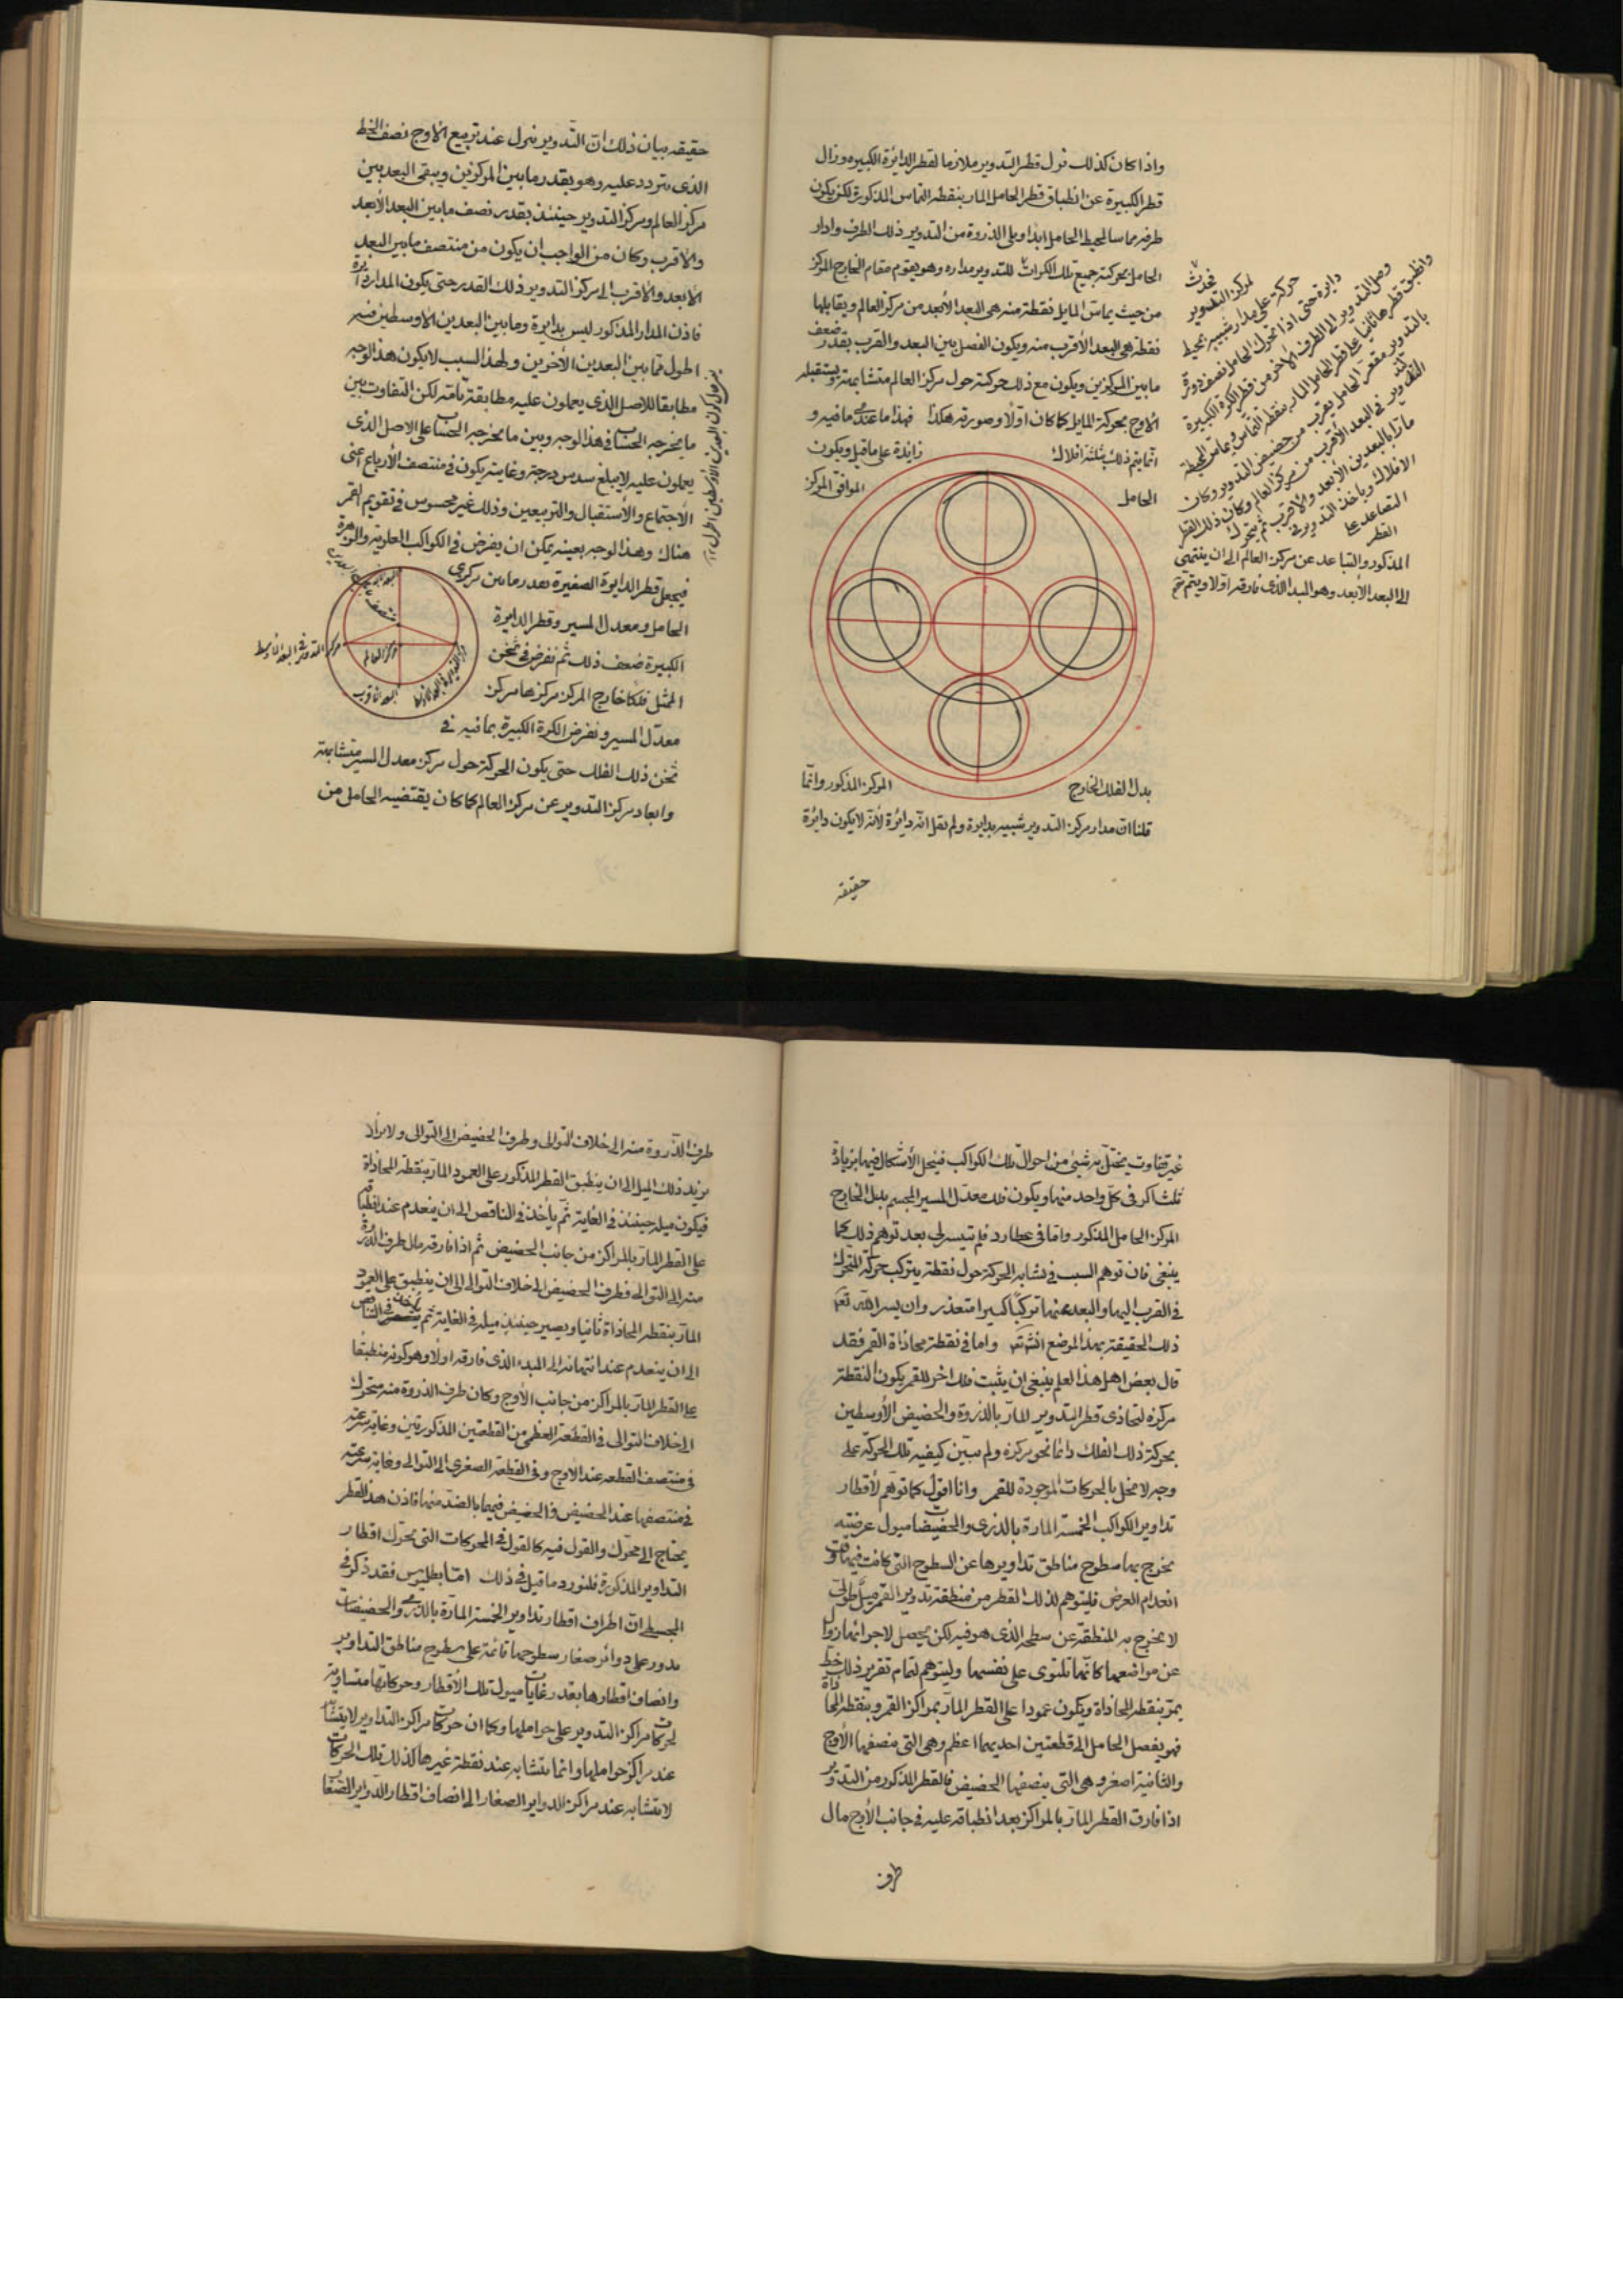 واذا كان كذلك نزل قطر التدوير ملازما لقطر الدائرة الكبيرة وزال
قطر الكبيرة عن انطباق قطر الحامل المار بنقطة التماس المذكورة لكن يكون
طرفه مماسا لمحيط الحامل ابدا ويلي الذروة من التدوير ذلك الطرف وادار
الحامل بحركته جميع تلك الكرات للتدوير مداره وهو يقوم مقام الخارج المركز
من حيث يماس المايل نقطة منه هي البعد الأبعد من مركز العالم ويقابلها
نقطة هي البعد الأقرب منه ويكون الفصل بين البعد والقرب بقدر ضعف
ما بين المركزين ويكون مع ذلك حركته حول مركز العالم متشابهة ويستقبله
الأوج بحركة المايل كما كان اولا وصورته هكذا فهذا ما عندي فيه و
انما يتم ذلك بثلثة افلاك زايدة على ما قيل ويكون
الحامل الموافق المركز
بدل الفلك الخارج المركز المذكور وانما
قلنا ان مدار مركز التدوير شبيه بدايرة ولم نقل انه دائرة لأنه لا يكون دائرة
حقيقة
فحدث
لمركز التدوير
حركة على مدار شبيه بمحيط
دايرة حتى اذا تحرك الحامل نصف دورة
وصل التدوير الى الطرف الآخر من قطر الكرة الكبيرة
وانطبق قطرها ثانيا على قطر الحامل المار بنقطة التماس ويماس المحيطة
بالتدوير مقعر الحامل بقرب من حضيض التدوير وكان
التدوير في البعد الأقرب من مركز العالم وكان ذلك القطر
مارا بالبعدين الأبعد والأقرب ثم يتحرك
الافلاك وياخذ التدوير في
التصاعد على
القطر
المذكور والتباعد عن مركز العالم الى ان ينتهي
الى البعد الأبعد وهو المبدا الذي فارقه اولا ويتم
حقيقة بيان ذلك ان التدوير نزل عند تربيع الأوج نصف الخط
الذي يتردد عليه وهو بقدر ما بين المركزين ويبقى البعد بين
مركز العالم ومركز التدوير حينئذ بقدر نصف ما بين البعد الأبعد
والأقرب وكان من الواجب ان يكون من منتصف ما بين البعد
الأبعد والأقرب الى مركز التدوير ذلك القدر حتى يكون المدار دايرة
فاذن المدار المذكور ليس بدايرة وما بين البعدين الاوسطين فيه
اطول مما بين البعدين الأخرين ولهذا السبب لا يكون هذا الوجه
مطابقا للاصل الذي يعملون عليه مطابقة تامة لكن التفاوت بين
ما يخرجه الحساب في هذا الوجه وبين ما يخرجه الحساب على الاصل الذي
يعملون عليه لا يبلغ سدس درجة وغايته يكون في منتصف الأرباع اعني
الاجتماع والأستقبال والتربيعين وذلك غير محسوس في تقويم القمر
هناك وهذا الوجه بعينه يمكن ان يفرض في الكواكب العلوية والزهرة
فيجعل قطر الدايرة الصغيرة بقدر ما بين مركزي
الحامل ومعدل المسير وقطر الدايرة
الكبيرة ضعف ذلك ثم نفرض في ثخن
الممثل فلكا خارج المركز مركزها مركز
معدل المسير ونفرض الكرة الكبيرة بما فيه في
ثخن ذلك الفلك حتى يكون الحركة حول مركز معدل المسير متشابهة
وابعاد مركز التدوير عن مركز العالم كما كان يقتضيه الحامل من
مركز العالم
البعد الاقرب
مركز التدوير في البعد الاوسط
غير تفاوت يختل به شيئ من احوال تلك الكواكب فينحل الأشكال فيها بزيادة
ثلث اكر في كل واحد منها ويكون فلك معدل المسير المجسم بدل الخارج
المركز الحامل المذكور واما في عطارد فلم تيسر لي بعد توهم ذلك كما
ينبغي فان توهم السبب في تشابه الحركة حول نقطة يتركب حركة المتحرك
في القرب اليها والبعد عنها تركبا كسيرا متعذر وان يسر الله تعالى
ذلك الحقيقة بهذا الموضع انشاءالله واما في نقطة محاذاة القمر فقد
قال بعض اهل هذا العلم ينبغي ان يثبت فلك اخر للقمر يكون النقطة
مركزه لتحاذي قطر التدوير المار بالذروة والحضيض الأوسطين
بحركة ذلك الفلك دائما نحو مركزه ولم يبين كيفية تلك الحركة على
وجه لا يخل بالحركات الموجودة للقمر وانا اقول كما توهم لأقطار
تداوير الكواكب الخمسة المارة بالذرى والحضيضات ميول عرضية
يخرج بها سطوح مناطق تداويرها عن السطوح التي كانت فيها وقت
انعدام العرض فليتوهم لذلك القطر من منطقة تدوير القمر ميل طولي
لا يخرج به المنطقة عن سطحه الذي هو فيه لكن يحصل لاجزائها زوال
عن مواضعها كانها تلتوي على نفسها وليتوهم لتمام تقرير ذلك خط
يمر بنقطة المحاذاة ويكون عمودا على القطر المار بمراكز القمر وبنقطة المحاذاة
فهو يفصل الحامل الى قطعتين احديهما اعظم وهي التي منصفها الأوج
والثانية اصغر وهي التي ينصفها الحضيض فالقطر المذكور من التدوير
اذا فارق القطر المار بالمراكز بعد انطباقه عليه في جانب الأوج مال
طرف
طرف الذروة منه الى خلاف التوالي وطرف الحضيض الى التوالي ولا يزال
يزيد ذلك الميل الى ان ينطبق القطر المذكور على العمود المار بنقطة المحاذاة
فيكون ميله حينئذ في الغاية ثم ياخذ في التناقص الى ان ينعدم عند انطباقه
على القطر المار بالمراكز من جانب الحضيض ثم اذا فارقه مال طرف الذروة
منه الى التوالي وطرف الحضيض الى خلاف التوالي الى ان ينطبق على العمود
المار بنقطة المحاذاة ثانيا ويصير حينئذ ميله في الغاية ثم ياخذ في التناقص
الى ان ينعدم عند انتهائه الى المبدء الذي فارقه اولا وهو كونه منطبقا
على القطر المار بالمراكز من جانب الأوج وكان طرف الذروة منه متحرك
الى خلاف التوالي في القطعة العظمى من القطعتين المذكورتين وغاية سرعته
في منتصف القطعة عند الاوج وفي القطعة الصغرى الى التوالي وغاية سرعته
في منتصفها عند الحضيض والحضيض فيهما بالضد منها فاذن هذا القطر
يحتاج الى محرك والقول فيه كالقول في المحركات التي تحرك اقطار
التداوير المذكورة فلنورد ما قيل في ذلك اما بطلميوس فقد ذكر في
المجسطي ان اطراف اقطار تداوير الخمسة المارة بالذرى والحضيضات
يدور على دوائر صغار سطوحها قائمة على سطوح مناطق التداوير
وانصاف اقطارها بقدر غايات ميول تلك الأقطار وحركاتها متساوية
لحركات مراكز التدوير على حواملها وكما ان حركات مراكز التداوير لا يتشابه
عند مراكز حواملها وانما يتشابه عند نقطة غيرها كذلك تلك الحركات
لا يتشابه عند مراكز الدواير الصغار الى انصاف اقطار الدواير الصغار